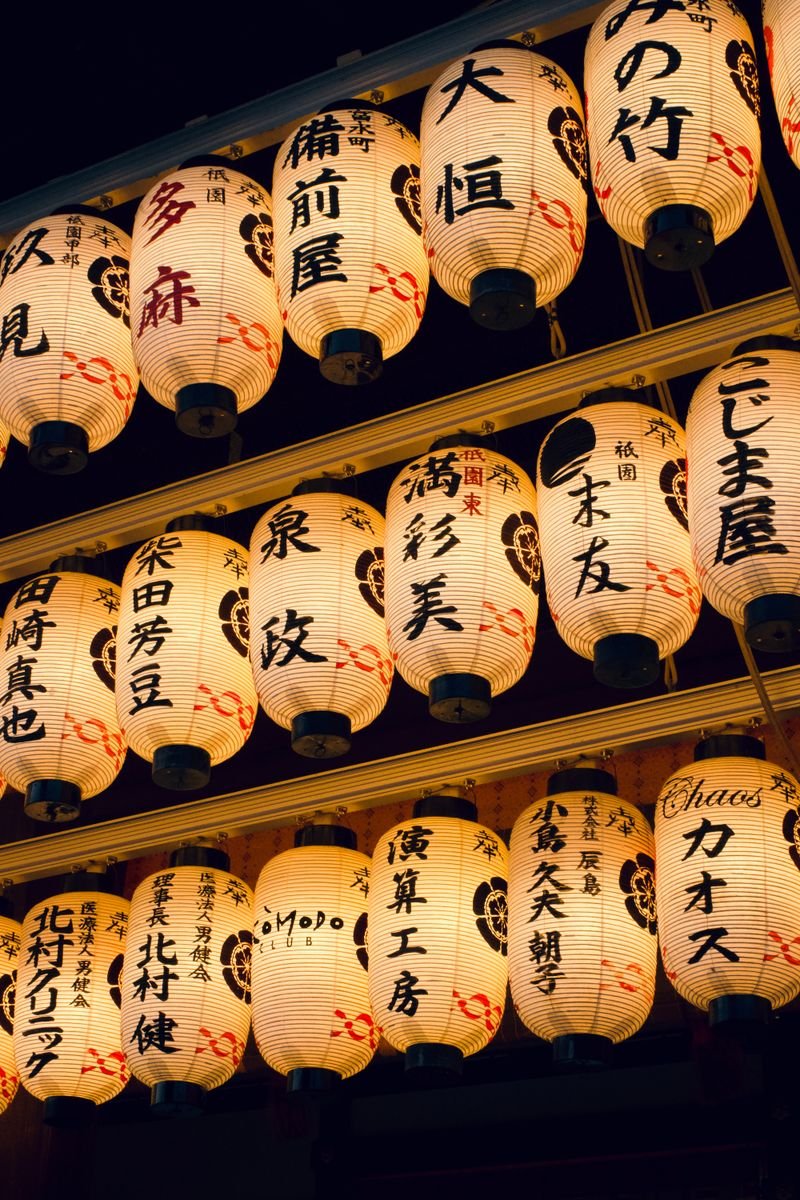 祇園甲部
玖見
奉
祇園
多麻
奉
宮木町
備前屋
奉
大恒
奉
みの竹
田崎真也
奉
柴田芳豆
奉
泉政
奉
祇園東
満彩美
奉
祇園
末友
奉
こじま屋
医療法人男健会
北村クリニック
奉
医療法人男健会
理事長
北村健
奉
CÒMODO
CLUB
奉
演算工房
奉
株式会社辰島
小島久夫
朝子
奉
Chaos
カオス
奉